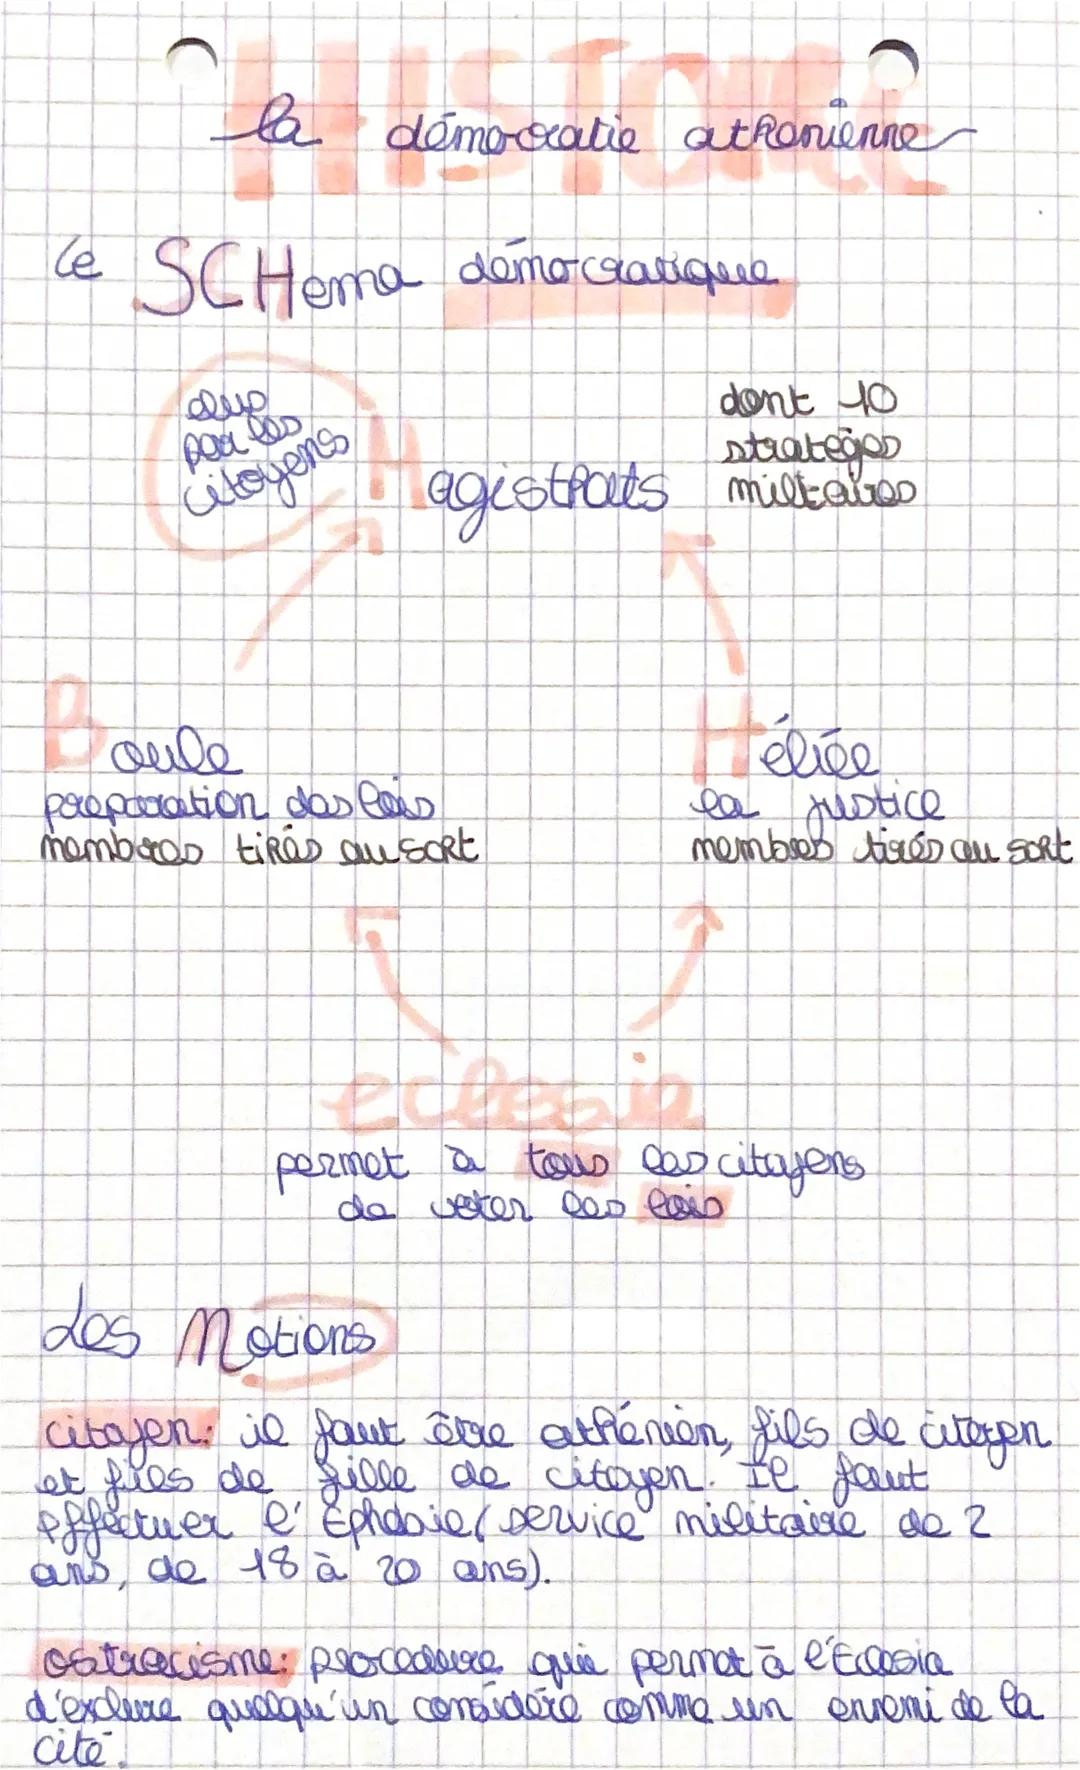 HISTOIRE
la démocratie athénienne
Le SCHema démocratique
élus
par les
citoyens
Magistrats
dont 10
stratèges
militaires
Boule
préparation des lois
membres tirés au sort
Héliée
la justice
membres tirés au sort
eclesia
permet à tous les citoyens
de voter les lois
Les Notions
citoyen: il faut être athénien, fils de citoyen
et fils de fille de citoyen. Il faut
effectuer l'Ephébie (service militaire de 2
ans, de 18 à 20 ans).
ostracisme: procedure qui permet à l'Eclesia
d'exclure quelqu'un considéré comme un ennemi de la
cité.